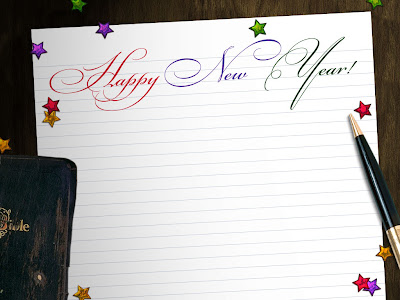 Happy New Year!
ible